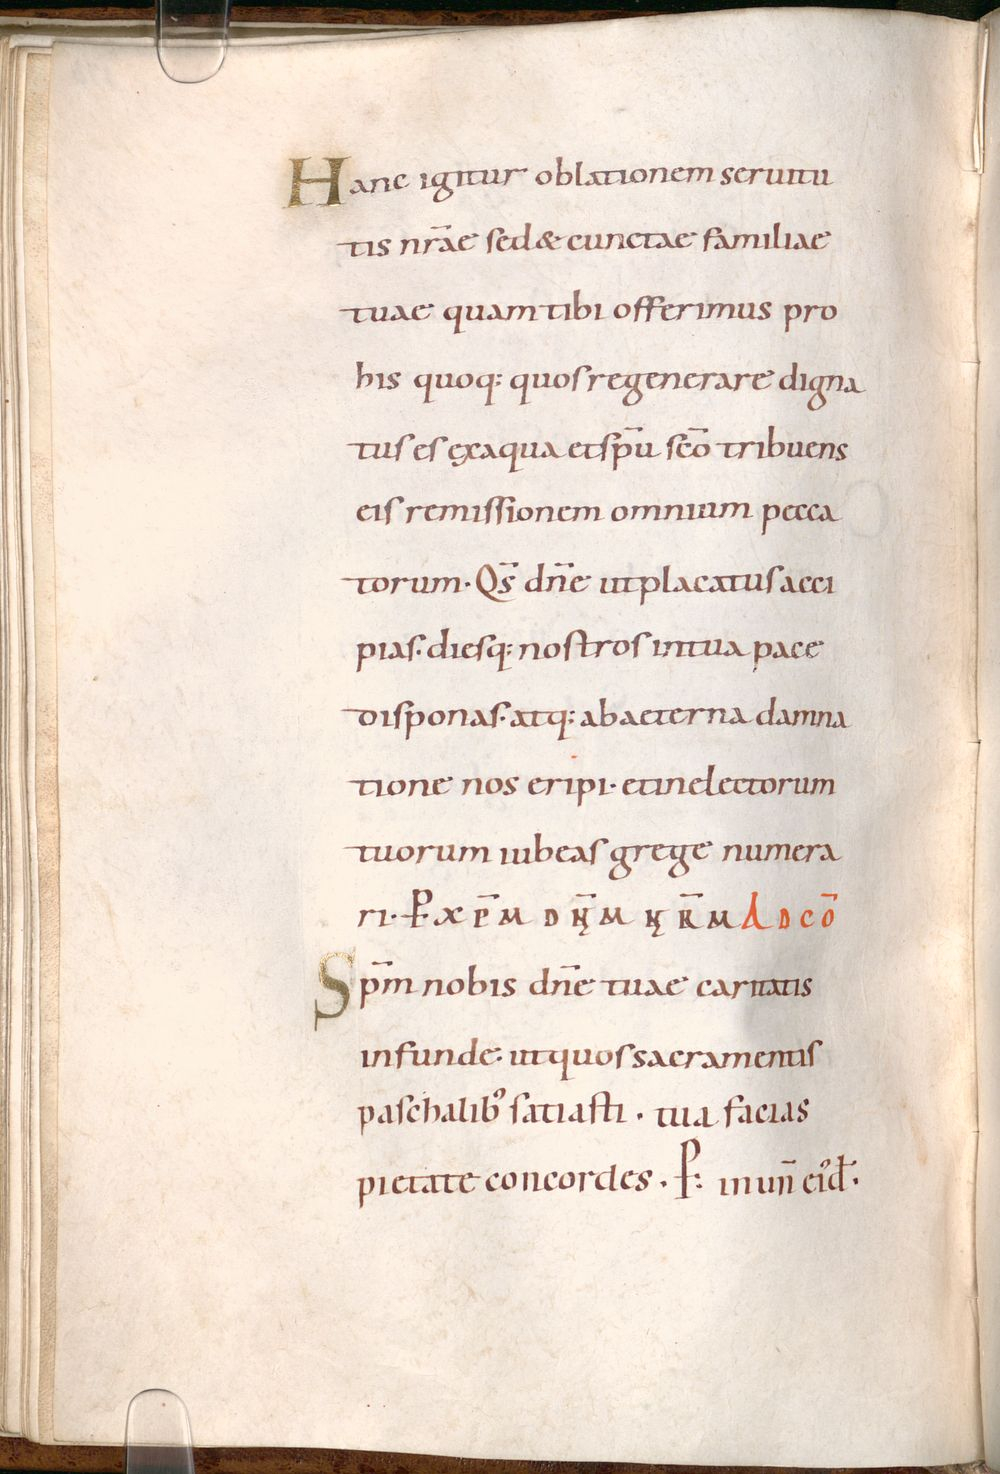 Hanc igitur oblationem seruitu
tis nr̄ae sed & cunctae familiae
tuae quam tibi offerimus pro
his quoq: quos regenerare digna
tus es ex aqua et sp̄u sc̄o tribuens
eis remissionem omnium pecca
torum· Qs̄ dn̄e ut placatus acci
pias· diesq: nostros in tua pace
disponas· atq: ab aeterna damna
tione nos eripi· et in electorum
tuorum iubeas grege numera
ri· P x p̄m d n̄m n r̄m AD CŌ
Sp̄m nobis dn̄e tuae caritatis
infunde· ut quos sacramentis
paschalib' satiasti · tua facias
pietate concordes · P: in un̄ ei'd·